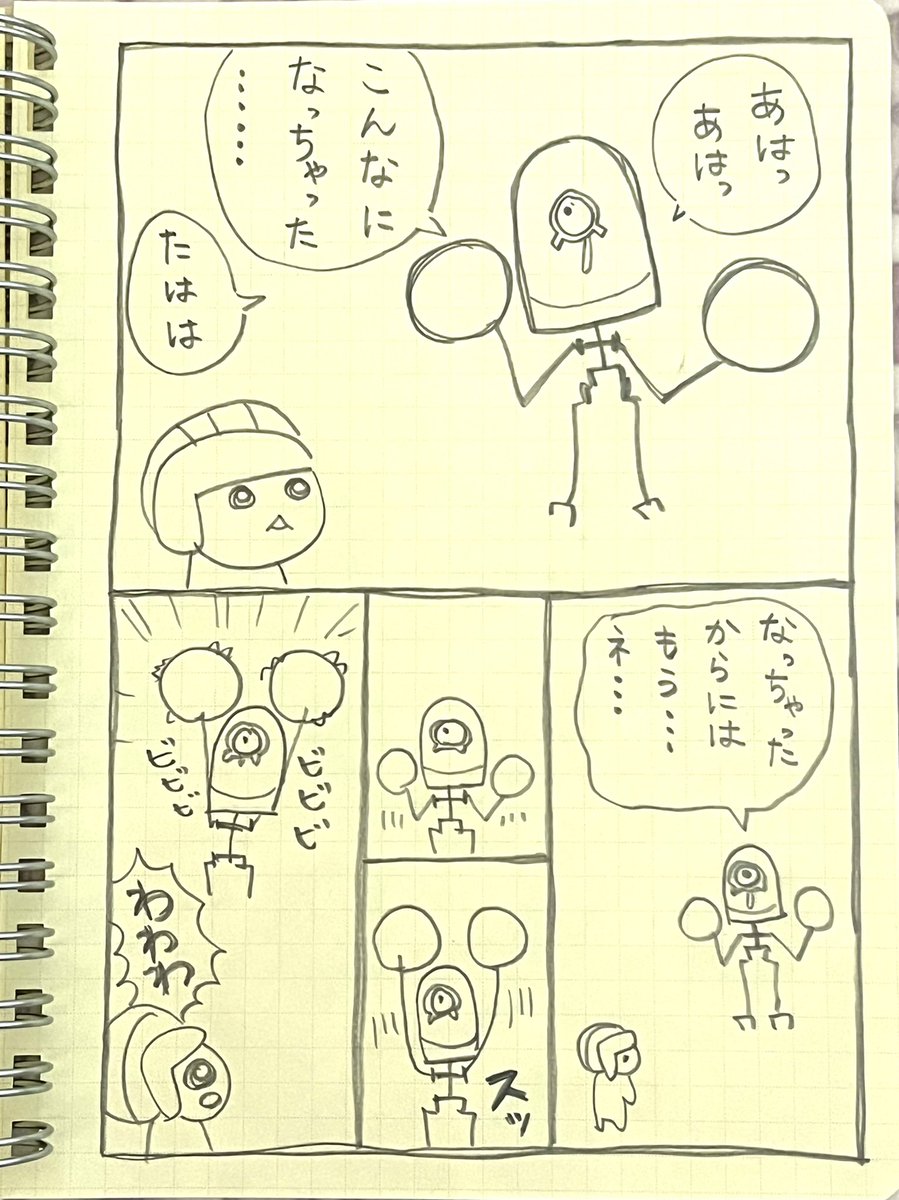 あはっ
あはっ
こんなに
なっちゃった
・・・・・
たはは
なっちゃった
からには
もう・・・
ネ・・・
スッ
ビビビ
ビビビ
わわわ